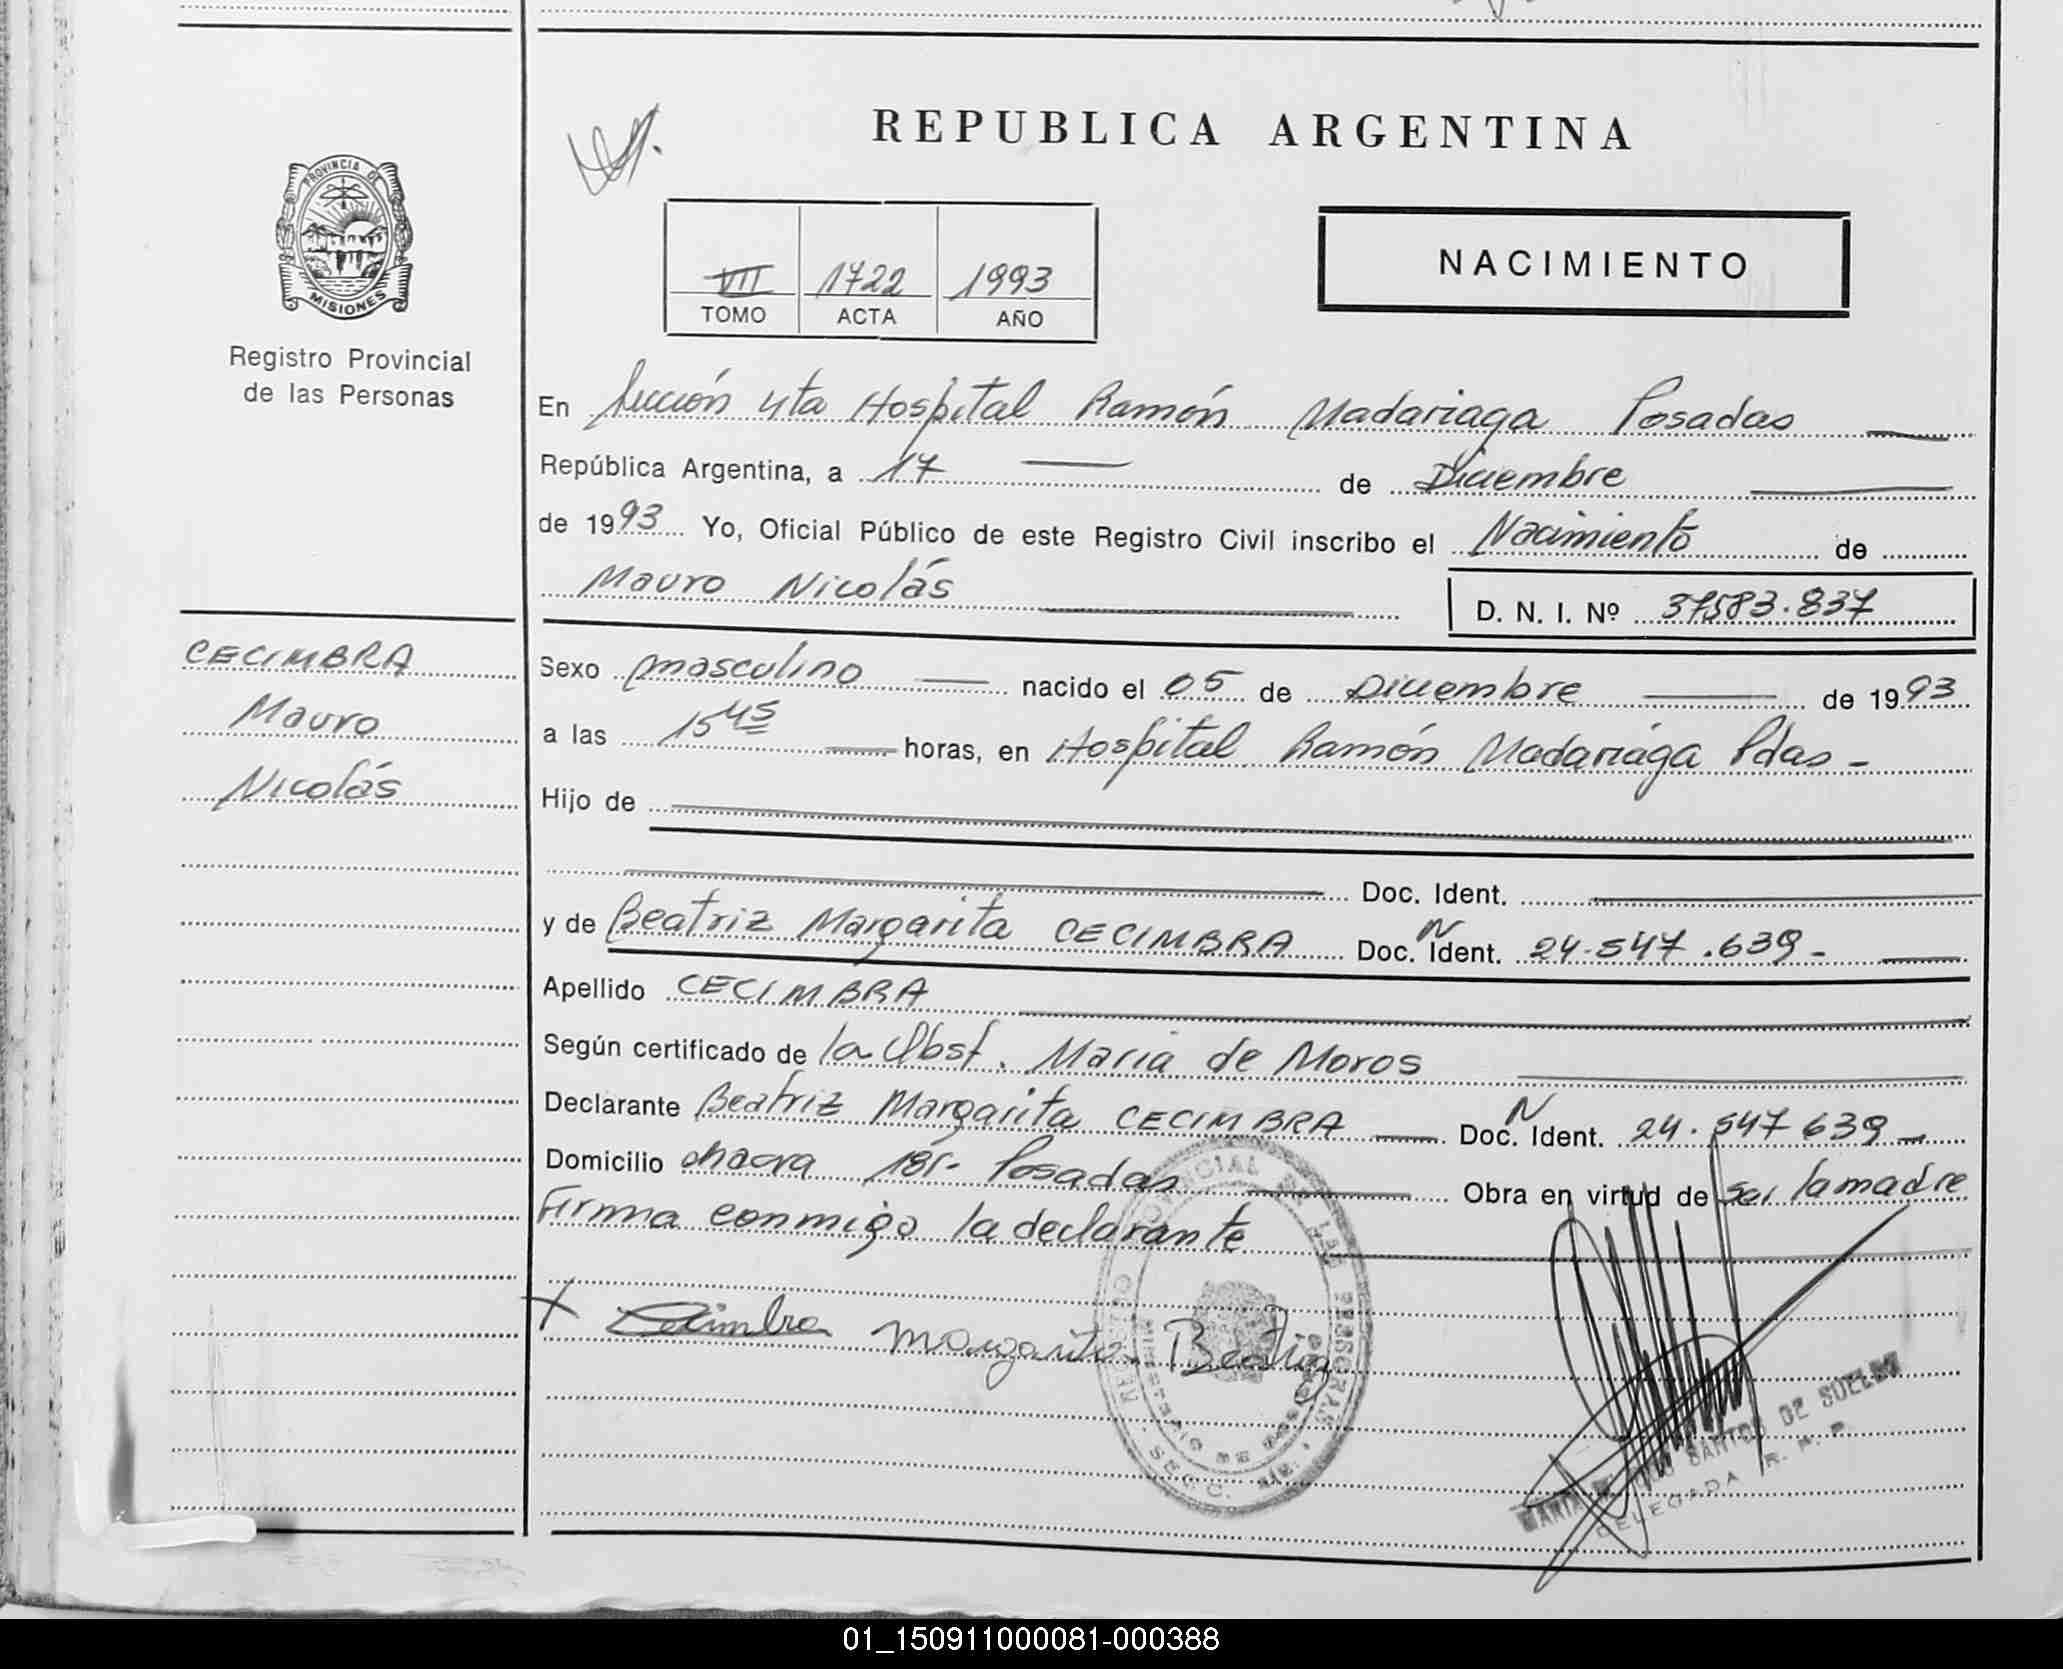 REPUBLICA ARGENTINA
PROVINCIA DE
MISIONES
Registro Provincial
de las Personas
VII 1722 1993
TOMO ACTA AÑO
NACIMIENTO
En Sección 4ta Hospital Ramón Madariaga Posadas
República Argentina, a 17 de Diciembre
de 1993 Yo, Oficial Público de este Registro Civil inscribo el Nacimiento de
Mauro Nicolás D. N. I. Nº 37583.837
CECIMBRA
Mauro
Nicolás
Sexo masculino nacido el 05 de Diciembre de 1993
a las 15 45 horas, en Hospital Ramón Madariaga Pdas -
Hijo de
Doc. Ident.
y de Beatriz Margarita CECIMBRA Doc. N Ident. 24.547.639-
Apellido CECIMBRA
Según certificado de la Obst. Maria de Moros
Declarante Beatriz Margarita CECIMBRA Doc. N Ident. 24.547639-
Domicilio chacra 181- Posadas Obra en virtud de ser la madre
Firma conmigo la declarante
X Cecimbra Margarita Beatriz
SANTOS DE
DELEGADA R. P. P.
01_150911000081-000388